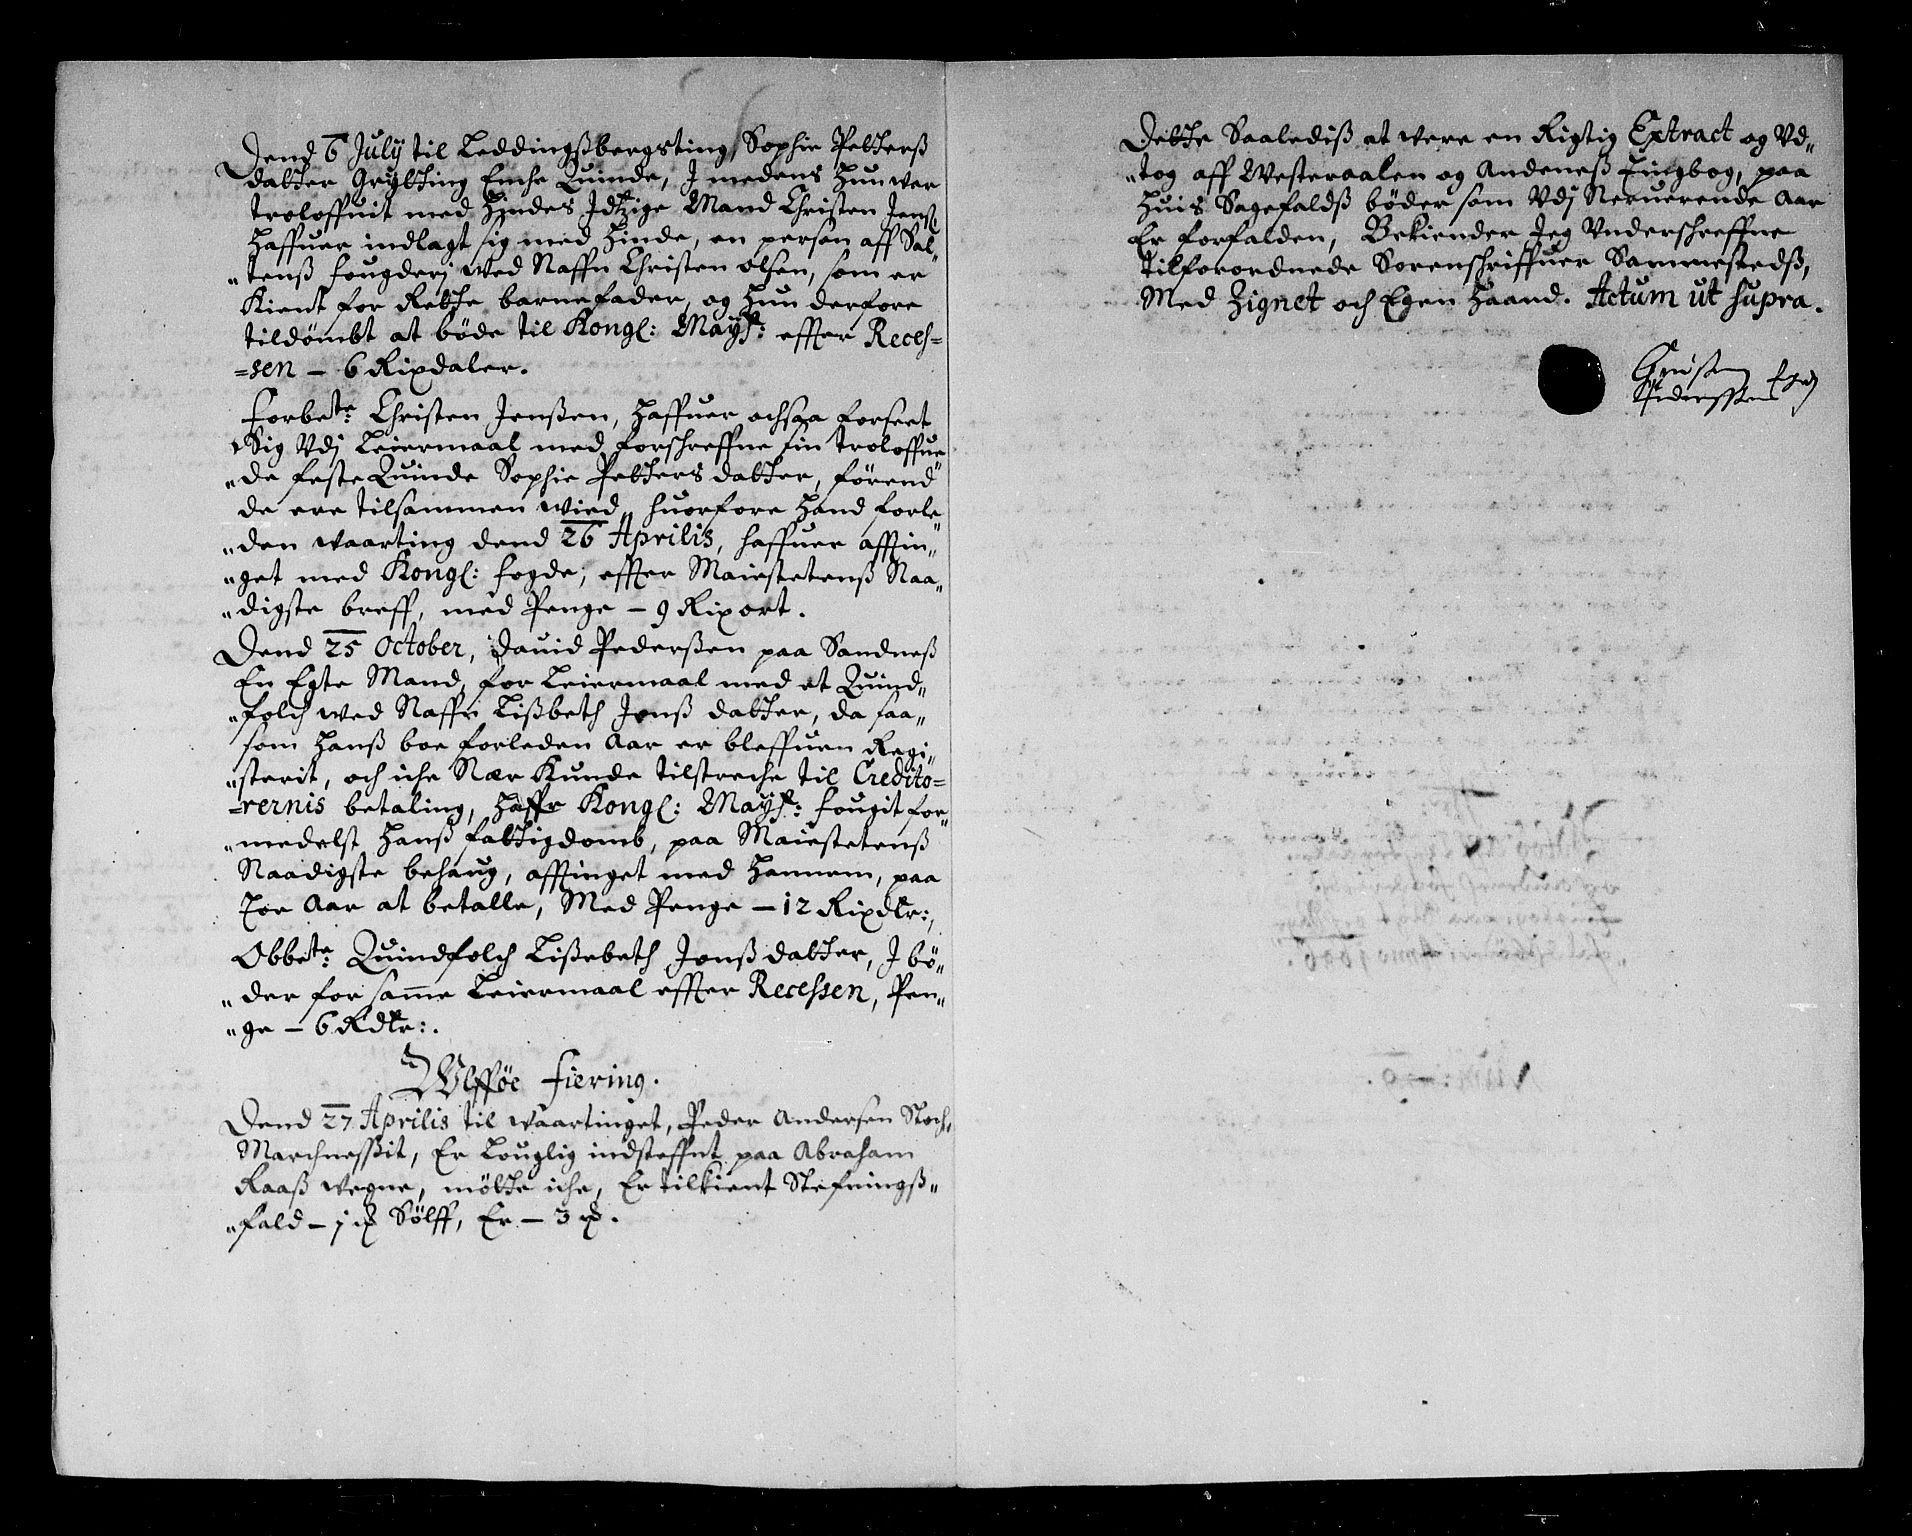 Dend 6 July til Leddingßbergsting, Sophie Petterß
datter Grytting Enche Quinde, J medens Hun wer
troloffuit med Hindes Jdtzige Mand Christen Jenß
Haffuer indlagt sig med Hinde, en person aff Sal„
„tenß fougderj wed Naffn Christen olsen, som er
Kient for Rette barnefader, og Hun derfore
tildömbt at böde til Kongl: Mayst: effter Reces=
=sen – 6 Rixdaler.
Forbete: Christen Jenßen, Haffuer ochsaa forseet
Sig Vdj Leiermaal med forschreffne sin troloffue„
„de feste Quinde Sophie Petters datter, förend
de ere tilsammen wied, huorfore Hand forle„
„den waarting dend 26 Aprilis, haffuer affin„
„get med Kongl: fogde, effter Maiestetenß Naa„
„digste breff, med Penge – 9 Rixort.
Dend 25 October, Dauid Pederßen paa Sandneß
En Egte Mand, for Leiermaal med et Quind„
„folch wed Naffn Lißbeth Jonß datter, da saa„
som Hanß boe forleden Aar er bleffuen Regi„
„sterit, och iche Nær Kunde tilstreche til Credito=
=rernis betaling, Haffr Kongl: Mayst: fougit for„
„medelst Hanß fattigdomb, paa Maiestetenß
Naadigste behaug, affinget med Hannem, paa
Toe Aar at betalle, Med Penge – 12 Rixdlr:,
Obbete: Quindfolch Lißebeth Jonßdatter, J bö„
„der for same Leiermaal effter Recessen, Pen„
„ge – 6 Rdlr:.
Wlfföe fiering.
Dend 27 Aprilis til waartinget, Peder Andersen Stoch„
Marchnessit, Er Louglig indsteffnt paa Abraham
Raaß wegne, mötte iche, Er tilkient Stefningß„
„fald – 1 Sölff, Er – 3
Dette Saalediß at were en Rigtig Extract og Vd„
„tog aff Westeraalen og Andeneß Tingbog, paa
Huis Sagefaldß böder som Vdj Neruerende Aar
Er forfalden, Bekiender Jeg Vnderschreffne
tilforordnede Sorenschriffuer Sammestedß,
Med Zignet och Egen Haand. Actum ut supra.
Pederssen